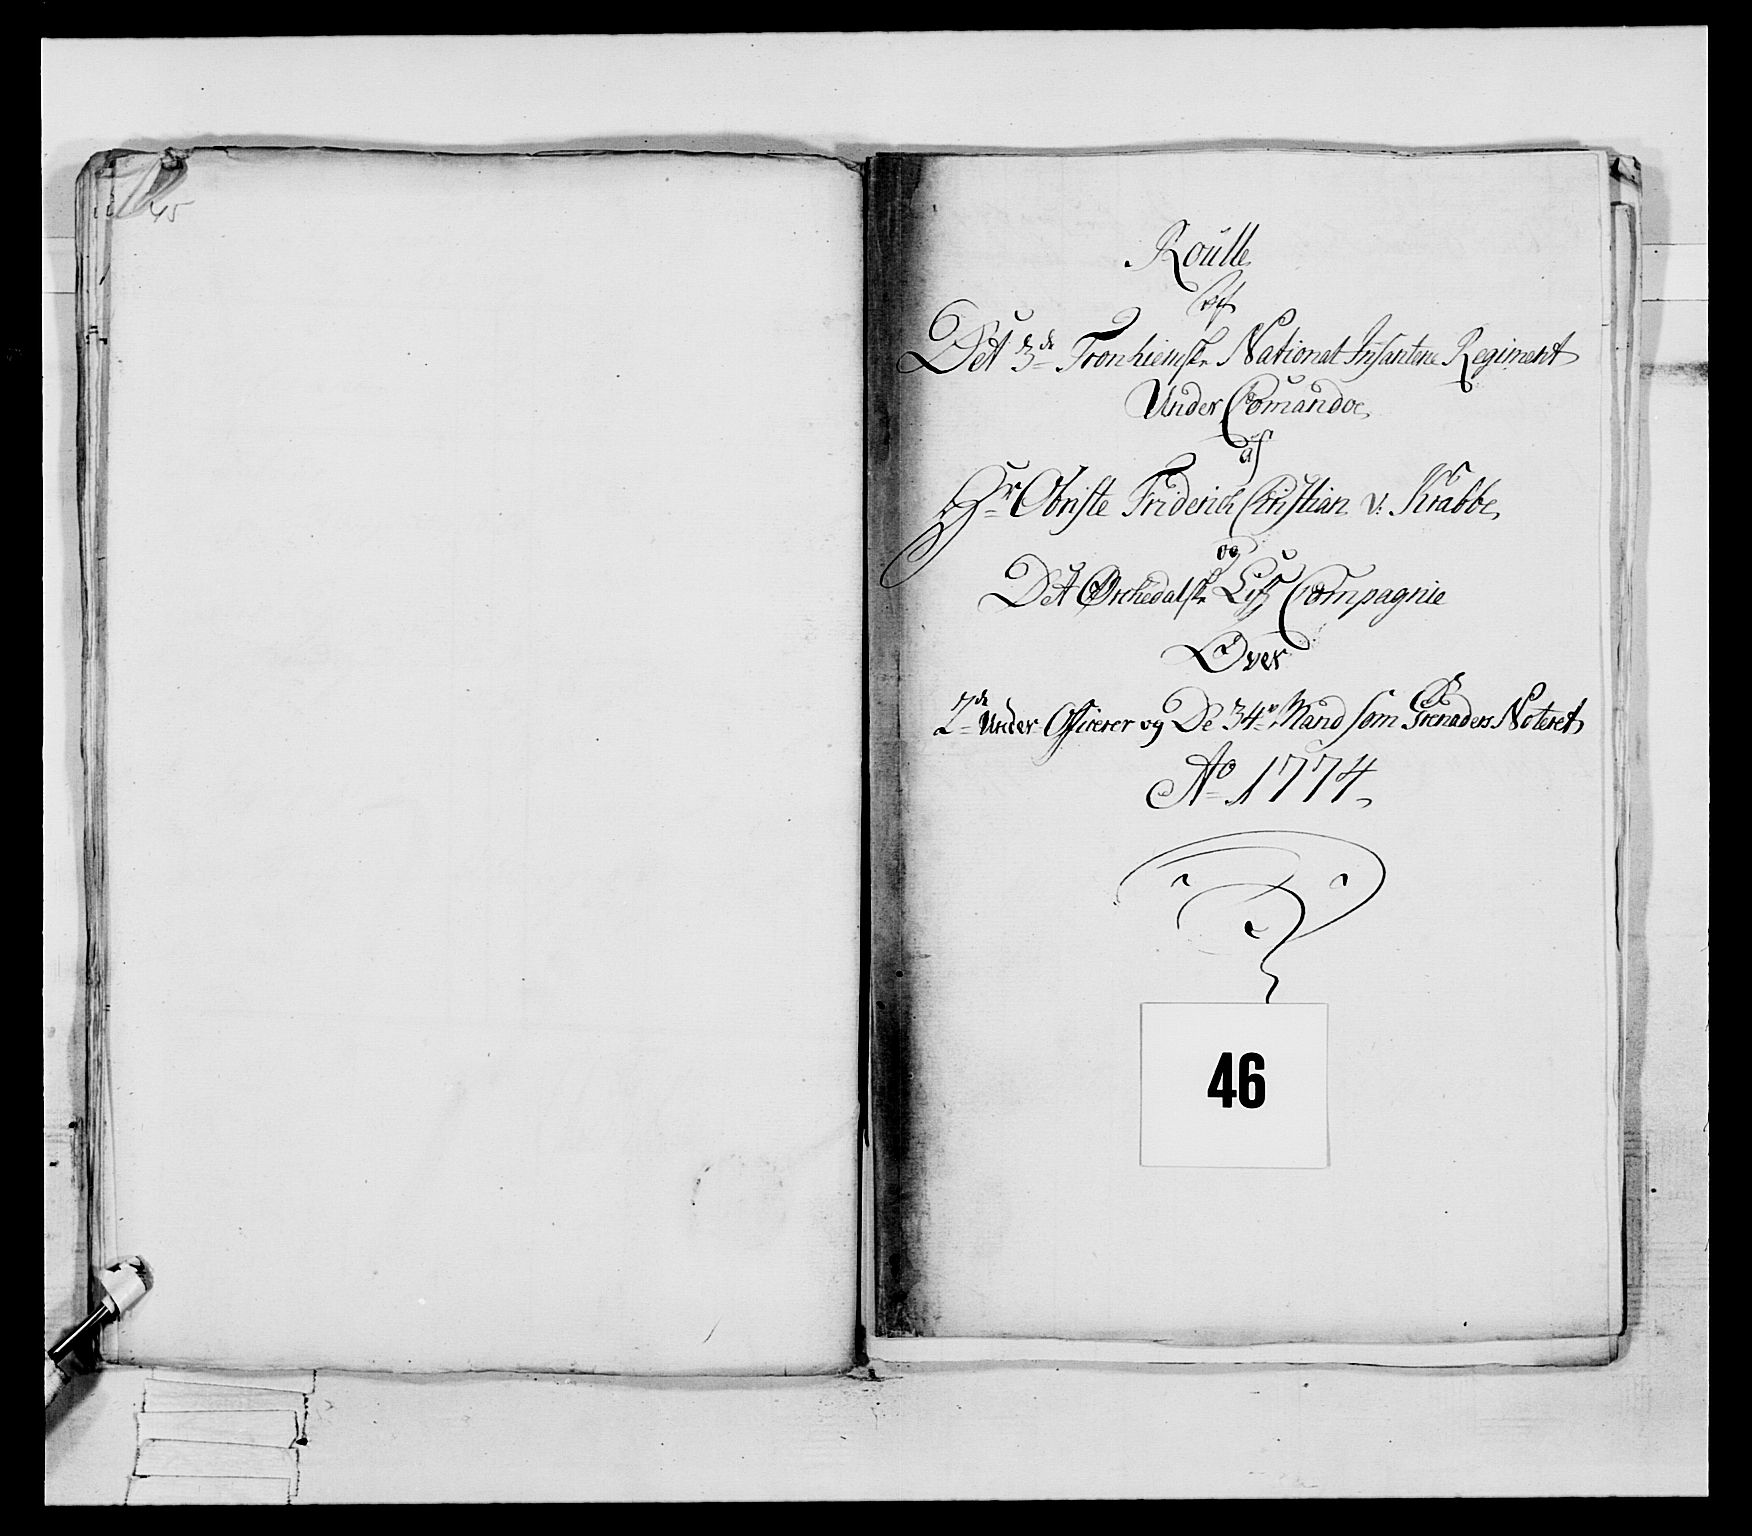 45
Roulle
af
Det 3de Tronhiemske National Infanterie Regiment
Under Comandoe
af
Hr Obriste Friderich Christian v: Krabbe
og
Det Ørchedalske Lif Compagnie
Over
2de Under Officerer og De 34re Mand som Grenaders Noteret
Ao 1774
46